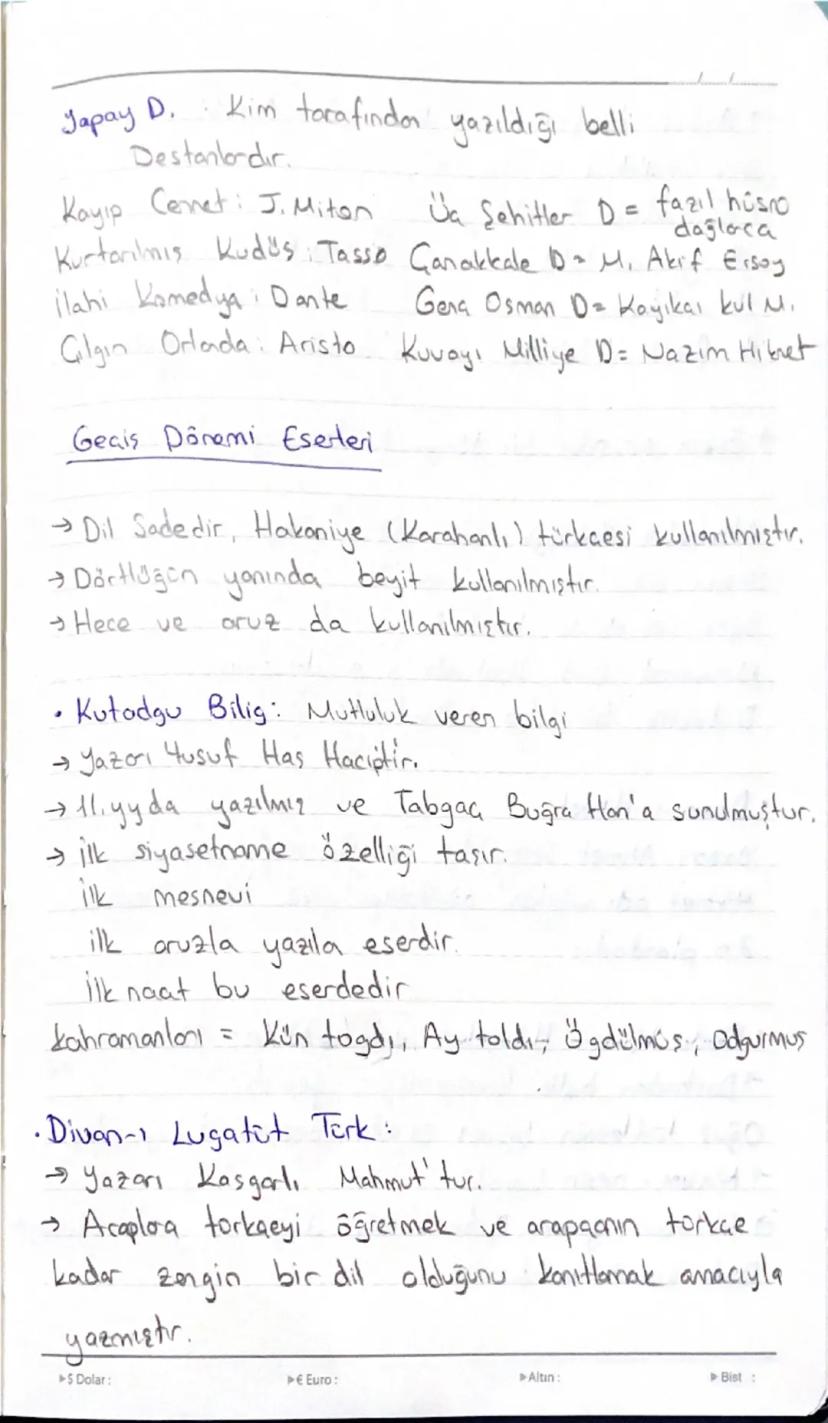 / /
Yapay D. : Kim tarafından yazıldığı belli
Destanlardır.
Kayıp Cennet : J. Miton Üç Şehitler D = fazıl hüsnü
dağlarca
Kurtarılmış Kudüs : Tasso Çanakkale D = M. Akif Ersoy
İlahi Komedya : Dante Genç Osman D = Kayıkçı kul M.
Çılgın Orlanda : Aristo Kuvayı Milliye D = Nazım Hikmet
Geçiş Dönemi Eserleri
→ Dil Sadedir, Hakaniye (Karahanlı) türkçesi kullanılmıştır.
→ Dörtlüğün yanında beyit kullanılmıştır.
→ Hece ve aruz da kullanılmıştır.
• Kutadgu Bilig : Mutluluk veren bilgi
→ Yazarı Yusuf Has Haciptir.
→ 11.yyda yazılmış ve Tabgaç Buğra Han'a sunulmuştur.
→ İlk siyasetname özelliği taşır.
ilk mesnevi
ilk aruzla yazıla eserdir.
İlk naat bu eserdedir
kahramanları = Kün togdı, Ay toldı, Ögdülmüş, Odgurmuş
• Divan-ı Lugatüt Türk :
→ Yazarı Kaşgarlı Mahmut'tur.
→ Acaplara türkçeyi öğretmek ve arapçanın türkçe
kadar zengin bir dil olduğunu kanıtlamak amacıyla
yazmıştır.
$ Dolar : € Euro : Altın : Bist :